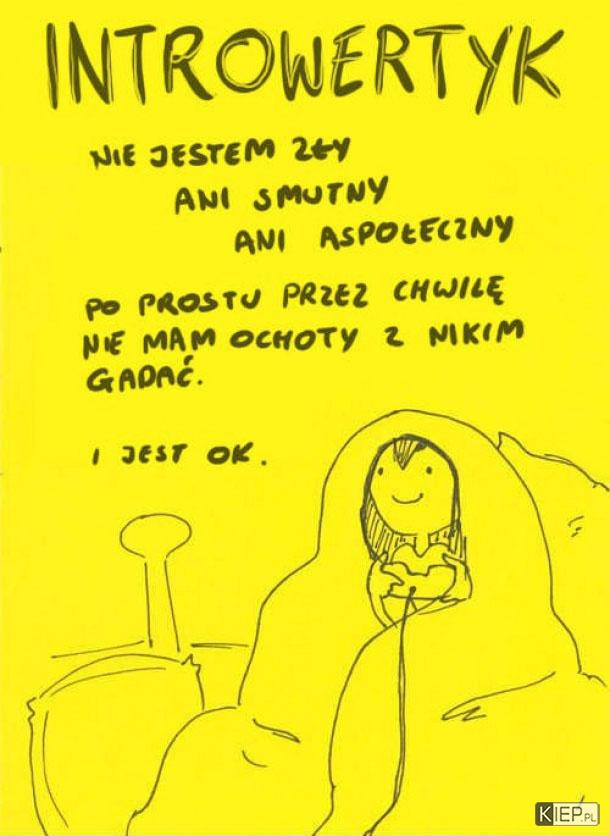 INTROWERTYK
NIE JESTEM ZŁY
ANI SMUTNY
ANI ASPOŁECZNY
PO PROSTU PRZEZ CHWILĘ
NIE MAM OCHOTY Z NIKIM
GADAĆ.
I JEST OK.
KIEP.PL